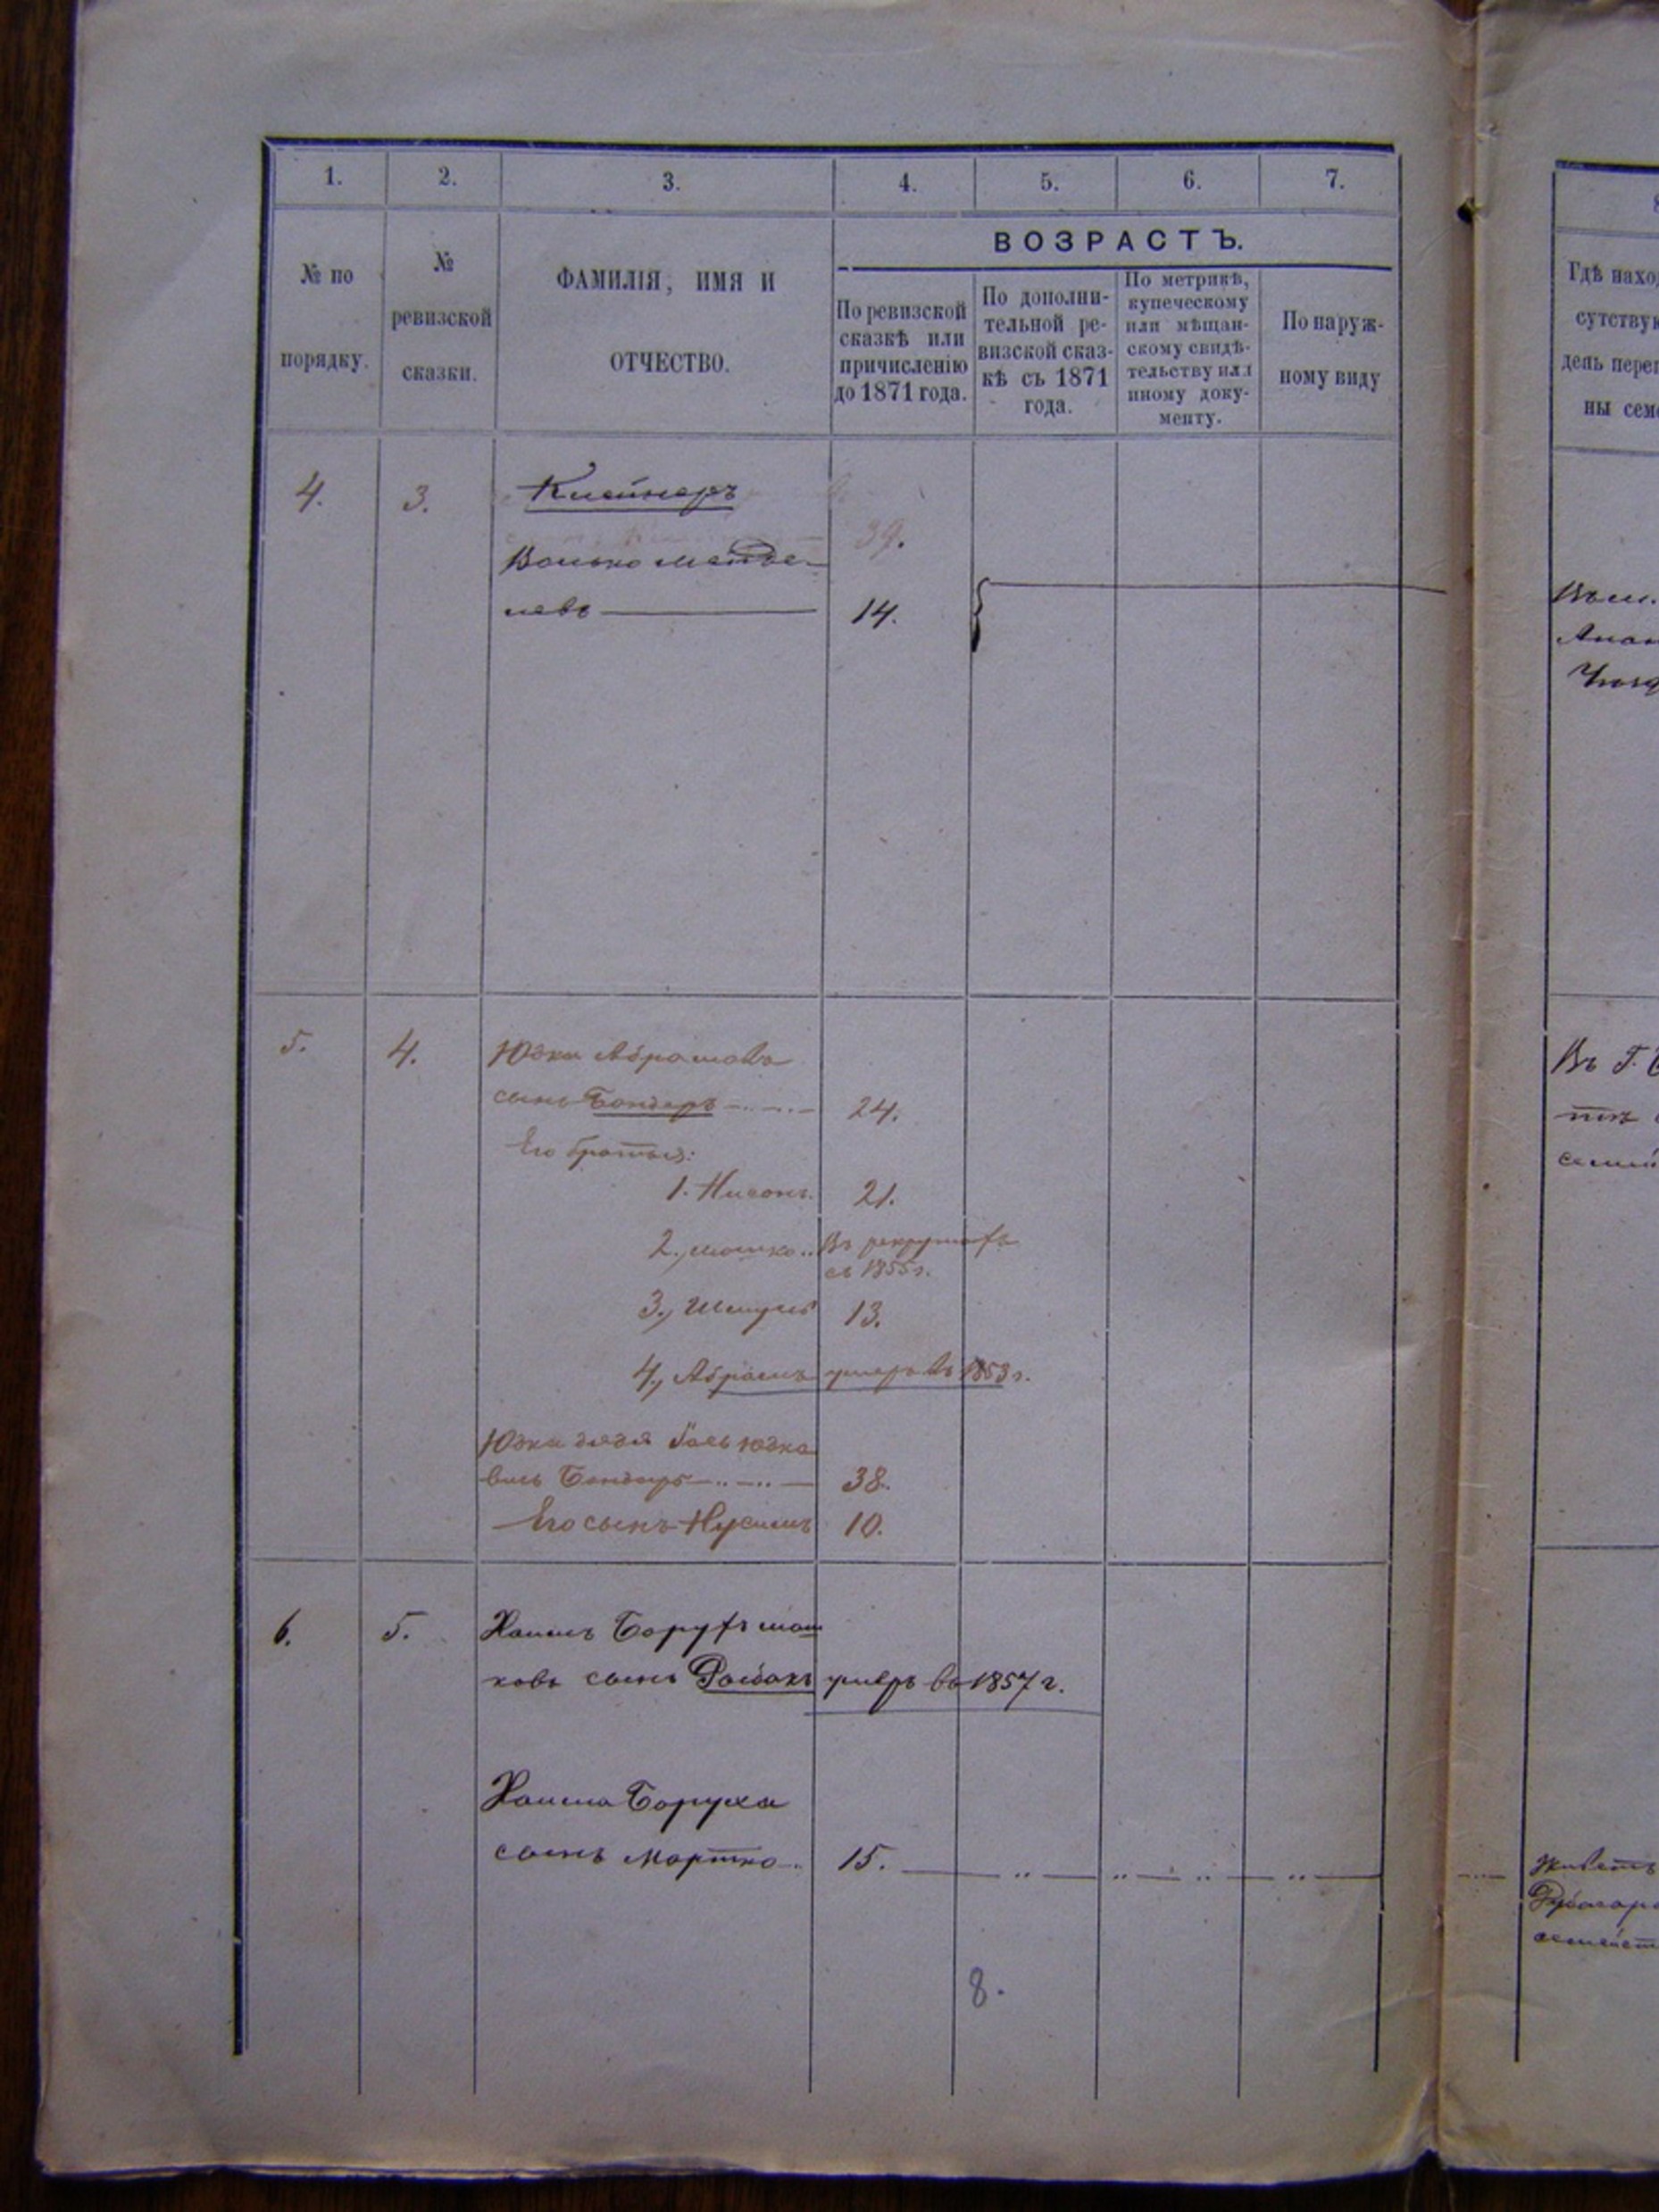 1. 2. 3. 4. 5. 6. 7.
№ по порядку.
№ ревизской сказки.
ФАМИЛІЯ, ИМЯ И
ОТЧЕСТВО.
ВОЗРАСТЪ.
По ревизской
сказкѣ или
причисленію
до 1871 года.
По дополни-
тельной ре-
визской сказ-
кѣ съ 1871
года.
По метрикѣ,
купеческому
или мѣщан-
скому свидѣ-
тельству или
иному доку-
менту.
По наруж-
ному виду
4. 3. Клейнеръ
39.
Волько Менде-
левъ 14.
5. 4. Юдки Абрамова
сынъ Бондарь 24.
Его братья:
1. Нисонъ. 21.
2., Мошко.. Въ рекрутахъ
съ 1855 г.
3., Шмуль 13.
4., Абрамъ умеръ въ 1853 г.
Юдки дядя Іось Юдко
вичъ Бондарь 38.
Его сынъ Нусимъ 10.
6. 5. Хаимъ Борухъ Мош
ковъ сынъ умеръ въ 1857 г.
Хаима Боруха
сынъ Мортко 15.
8.
Гдѣ нахо
сутствую
день переп
ны сем
Въ м.
Анан
Въ Г.
семей
живетъ
семейст